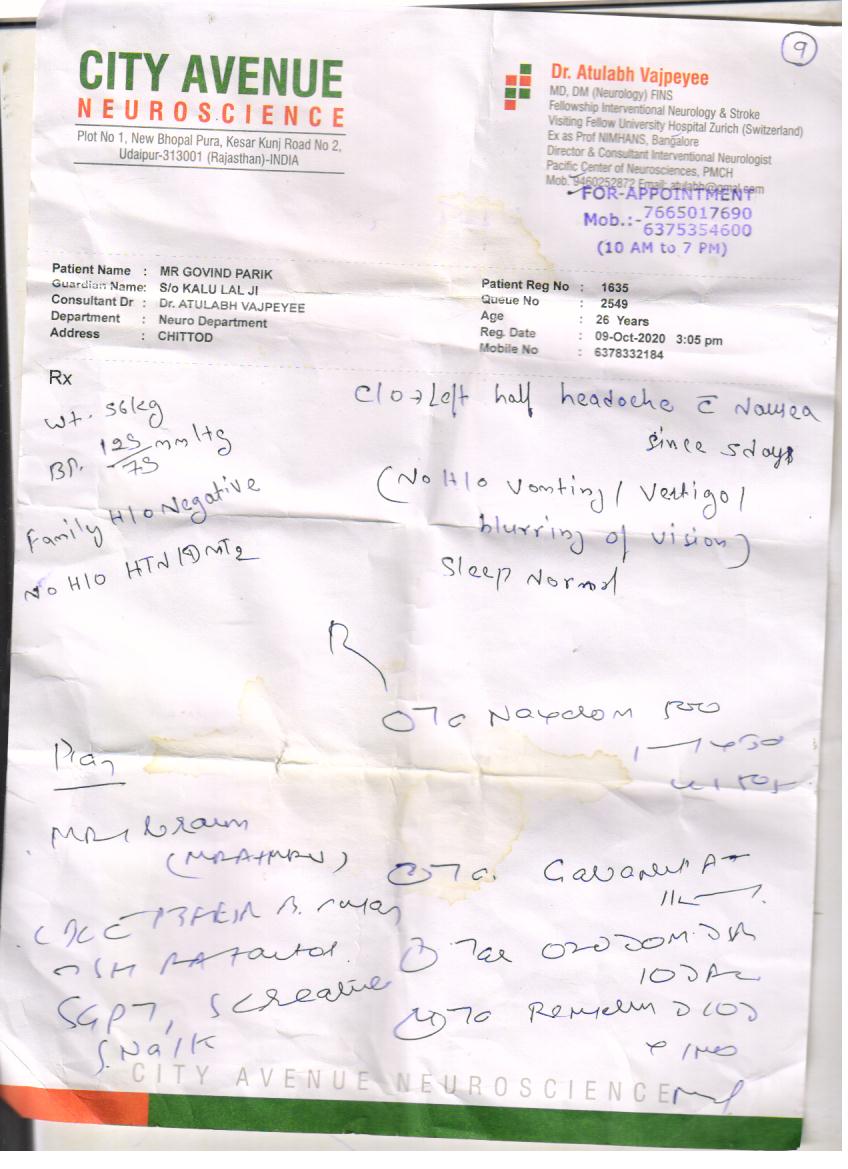 9
CITY AVENUE
NEUROSCIENCE
Plot No 1, New Bhopal Pura, Kesar Kunj Road No 2,
Udaipur-313001 (Rajasthan)-INDIA
Dr. Atulabh Vajpeyee
MD, DM (Neurology) FINS
Fellowship Interventional Neurology & Stroke
Visiting Fellow University Hospital Zurich (Switzerland)
Ex as Prof NIMHANS, Bangalore
Director & Consultant Interventional Neurologist
Pacific Center of Neurosciences, PMCH
Mob. 9460252872 Email: atulabh@gmail.com
FOR-APPOINTMENT
Mob.:- 7665017690
6375354600
(10 AM to 7 PM)
Patient Name : MR GOVIND PARIK
Guardian Name: S/o KALU LAL JI
Consultant Dr : Dr. ATULABH VAJPEYEE
Department : Neuro Department
Address : CHITTOD
Patient Reg No : 1635
Queue No : 2549
Age : 26 Years
Reg. Date : 09-Oct-2020 3:05 pm
Mobile No : 6378332184
Rx
Wt. 56kg
BP. 125/75 mmHg
Family H/o Negative
No H/o HTN/DMT2
C/o → Left half headache c̄ Nausea
since 5days
(No H/o Vomting/ Vertigo/
blurring of vision)
Sleep Normal
R
Naxdom 500
Plan
MRI brain
SGPT, S Creatine
S. Na/K
CITY AVENUE NEUROSCIENCE